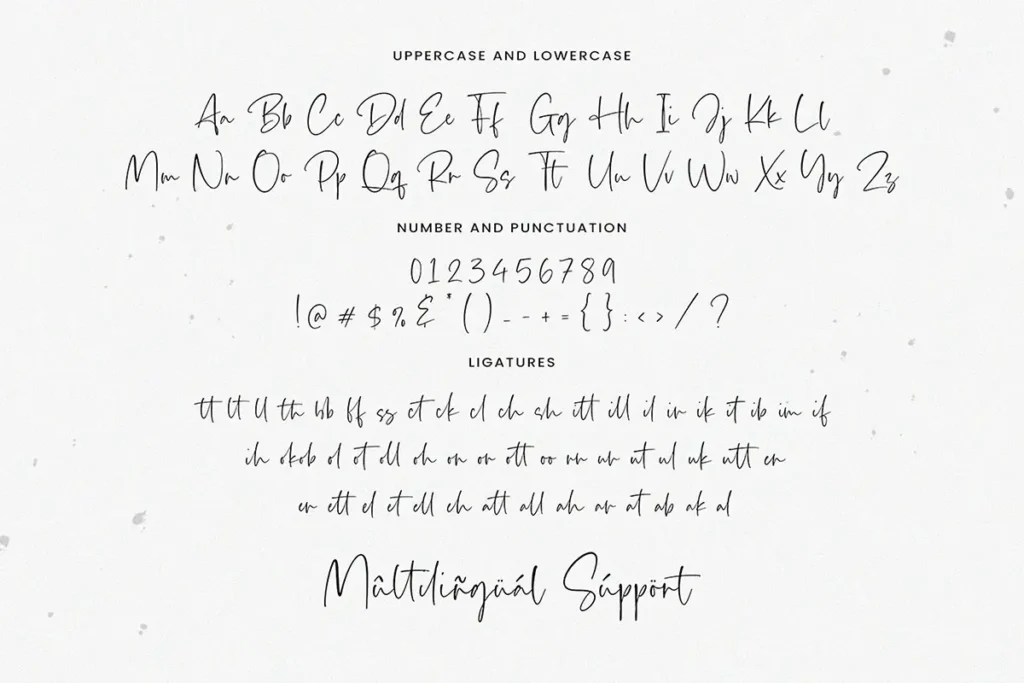 UPPERCASE AND LOWERCASE
Aa Bb Cc Dd Ee Ff Gg Hh Ii Jj Kk Ll
Mm Nn Oo Pp Qq Rr Ss Tt Uu Vv Ww Xx Yy Zz
NUMBER AND PUNCTUATION
0123456789
!@#$%&*()_-+={}:<>/?
LIGATURES
tt lt ll th bb ff ss ct ck cl ch sh itt ill il in ik it ib im if
ih ok ob ol ot oll oh on or ott oo un ur ut ul uk utt en
er ett el et ell eh att all ah ar at ab ak al
Mûltdiñgüál Súppört